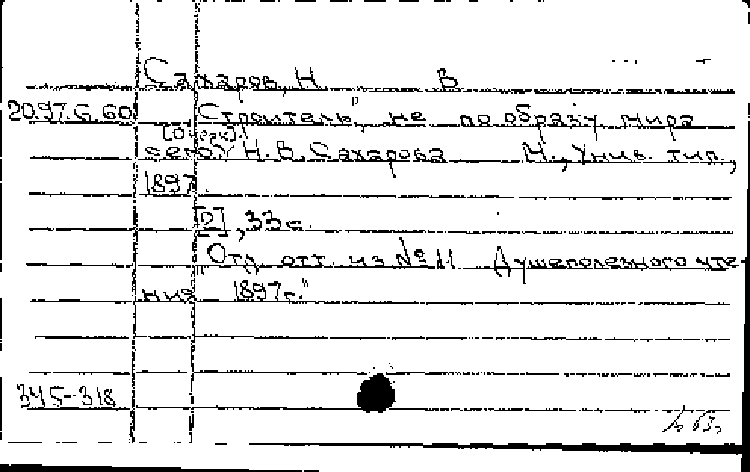 Сахаров, Н В
20.97.6.60 „Строитель" не по образу мира
[Очерк].
Н. В. Сахарова М., Унив. тип.,
1897
33 с.
"Отд. отт. из № 11 Душеполезного чте-
ния 1897 г."
345-318